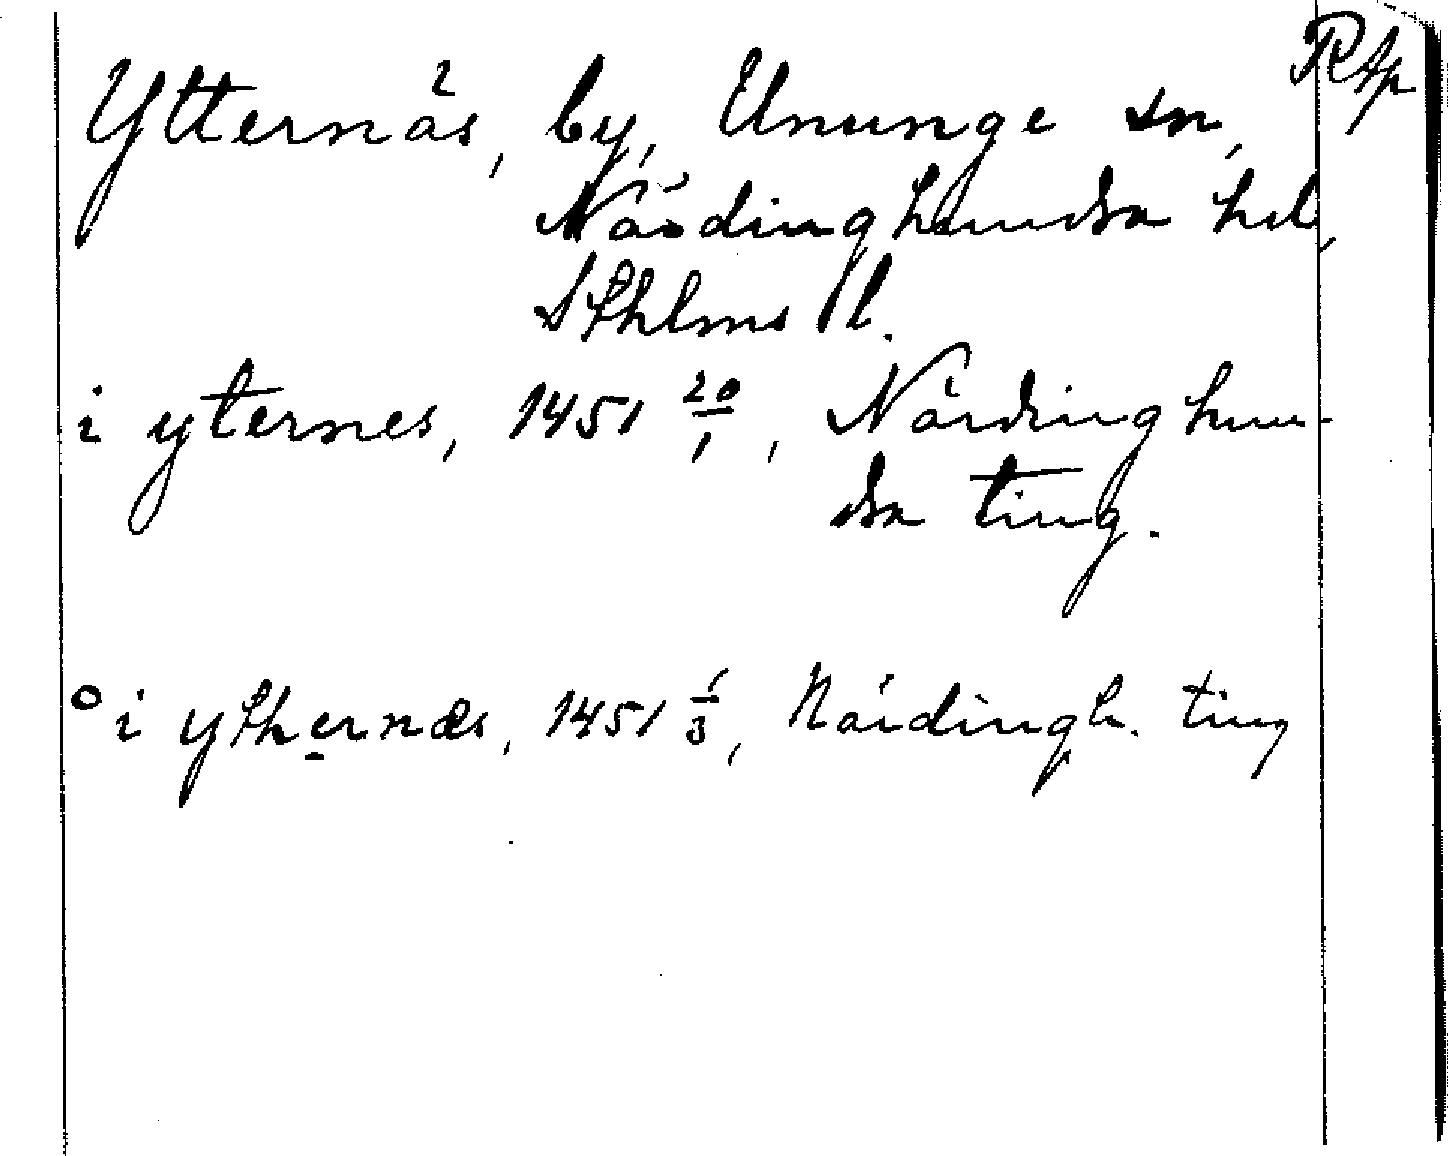 RAp
Ytternäs, by, Ununge sn,
Närdinghundra hd,
Sthlms l.
i yternes, 1451 20/1, Närdinghun-
dra ting.
° i ythernæs, 1451 1/3, Närdingh. ting